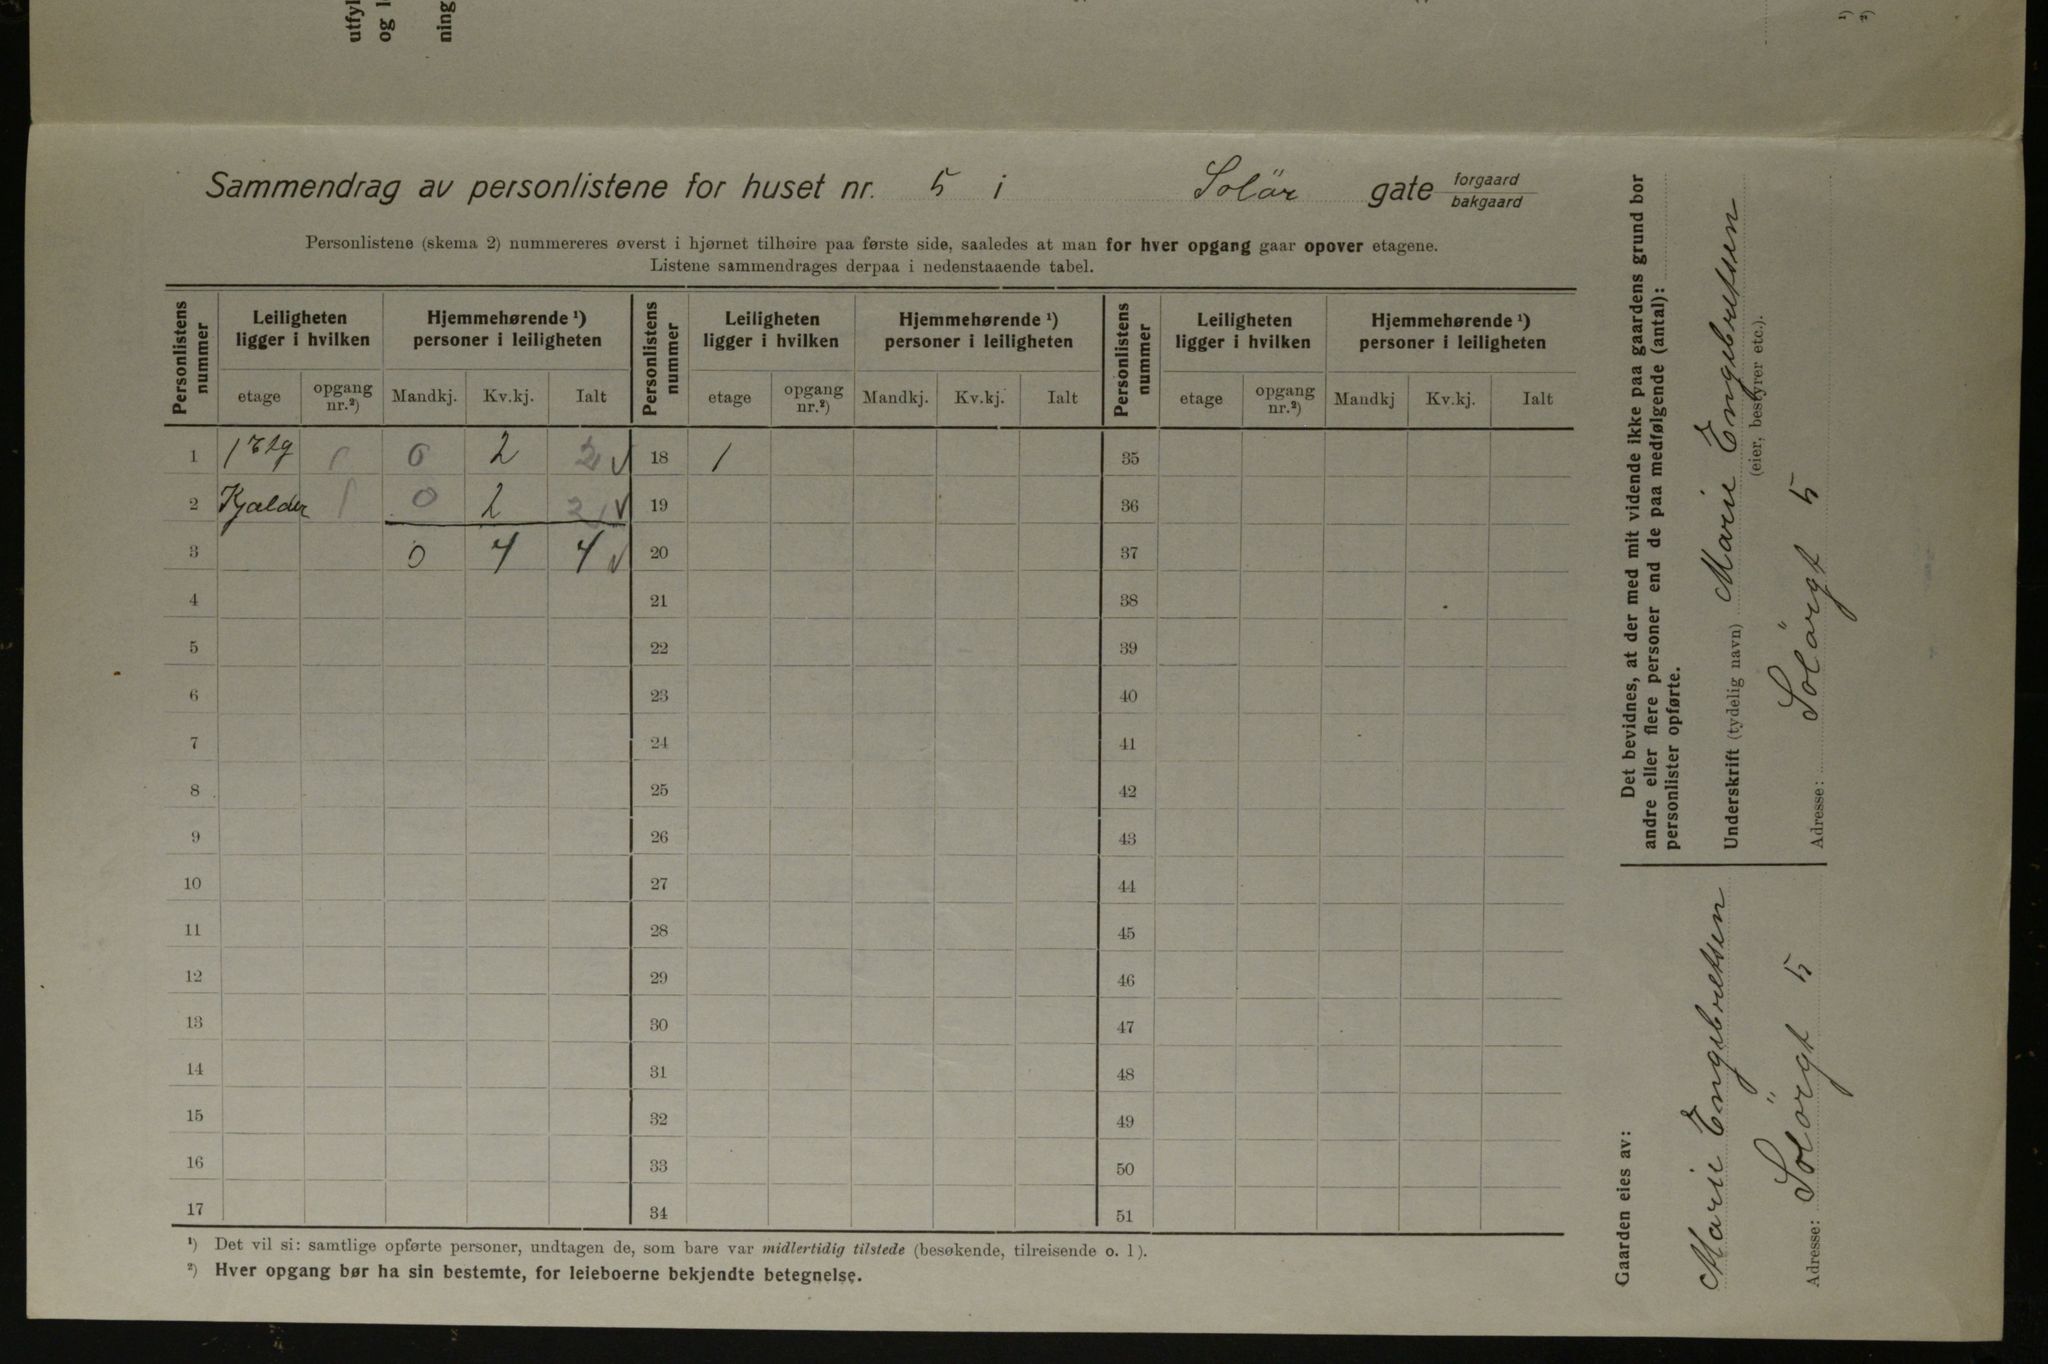 utfyl
og l
ning
¹)
²)
Sammendrag av personlistene for huset nr. 5 i Solör gate forgaard
bakgaard
Personlistene (skema 2) nummereres øverst i hjørnet tilhøire paa første side, saaledes at man for hver opgang gaar opover etagene.
Listene sammendrages derpaa i nedenstaaende tabel.
Personlistens nummer Leiligheten ligger i hvilken Hjemmehørende ¹) personer i leiligheten Personlistens nummer Leiligheten ligger i hvilken Hjemmehørende ¹) personer i leiligheten Personlistens nummer Leiligheten ligger i hvilken Hjemmehørende ¹) personer i leiligheten
etage opgang nr.²) Mandkj. Kv.kj. Ialt etage opgang nr.²) Mandkj. Kv.kj. Ialt etage opgang nr.²) Mandkj Kv.kj. Ialt
1 1 Etg 1 0 2 2 √ 18 1 35
2 Kjælder 1 0 2 2 √ 19 36
3 0 4 4 √ 20 37
4 21 38
5 22 39
6 23 40
7 24 41
8 25 42
9 26 43
10 27 44
11 28 45
12 29 46
13 30 47
14 31 48
15 32 49
16 33 50
17 34 51
¹) Det vil si: samtlige opførte personer, undtagen de, som bare var midlertidig tilstede (besøkende, tilreisende o. l).
²) Hver opgang bør ha sin bestemte, for leieboerne bekjendte betegnelse.
Det bevidnes, at der med mit vidende ikke paa gaardens grund bor
andre eller flere personer end de paa medfølgende (antal):
personlister opførte.
Underskrift (tydelig navn) Marie Engebretsen
(eier, bestyrer etc.).
Adresse: Solörgt 5
Gaarden eies av:
Marie Engebretsen
Adresse: Solörgt 5